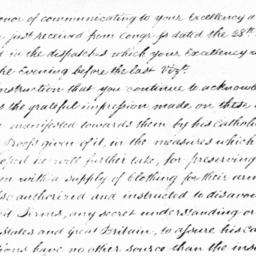 onor of communicating to your Excellency a
just received from Congress dated the 28th
d in the despatches which your Excellency
he Evening before the last Vizt.
nstruction that you continue to acknow
s the grateful impression made on these
manifested towards them by his Catholi
Proofs given of it, in the measures which
oped he will further take, for preserving
em with a supply of Cloathing for their arm
lso authorized and instructed to disavow
Terms, any secret understanding or
States and Great Britain, to assure his Ca
tions have no other source than the ins